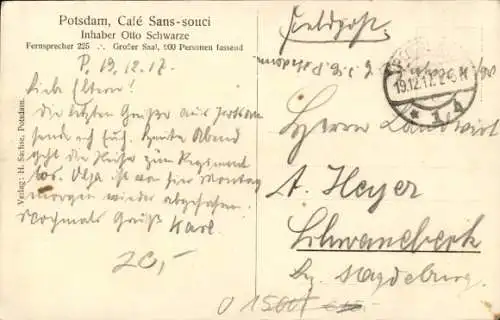 Potsdam, Café Sans-souci
Inhaber Otto Schwarze
Fernsprecher 225 ∴ Großer Saal, 900 Personen fassend
P. 19.12.17.
Liebe Eltern!
Die letzten Grüße aus Potsdam
sende ich Euch. Heute Abend
geht die Reise zum Regiment
los. ist von hier Montag
morgen wieder abgefahren.
Nochmals Gruß Karl.
20,-
Verlag: H. Sachse, Potsdam.
Feldpost.
19.12.17.
Herrn Landwirt
A. Heyer
Schwanebeck
Bz. Magdeburg.